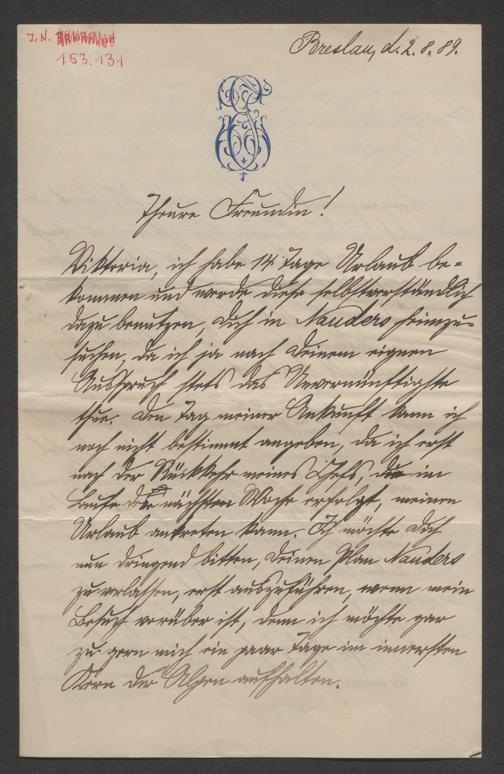 J. N.
153.131
Breslau, d. 2. 8. 89.
Theure Freundin!
Viktoria, ich habe 14 Tage Urlaub be-
kommen und werde diese selbstverständlich
dazu benutzen, Dich in Nauders heimzu-
suchen, da ich ja nach Deinem eignen
Ausspruch stets das Unvernünftigste
thue. Den Tag meiner Ankunft kann ich
noch nicht bestimmt angeben, da ich erst
nach der Rückkehr meines Chefs, die im
Laufe der nächsten Woche erfolgt, meinen
Urlaub antreten kann. Ich möchte Dich
nun dringend bitten, Deinen Plan Nauders
zu verlassen, erst auszuführen, wenn mein
Besuch vorüber ist, denn ich möchte gar
zu gern mich ein paar Tage im innersten
Kern der Alpen aufhalten.